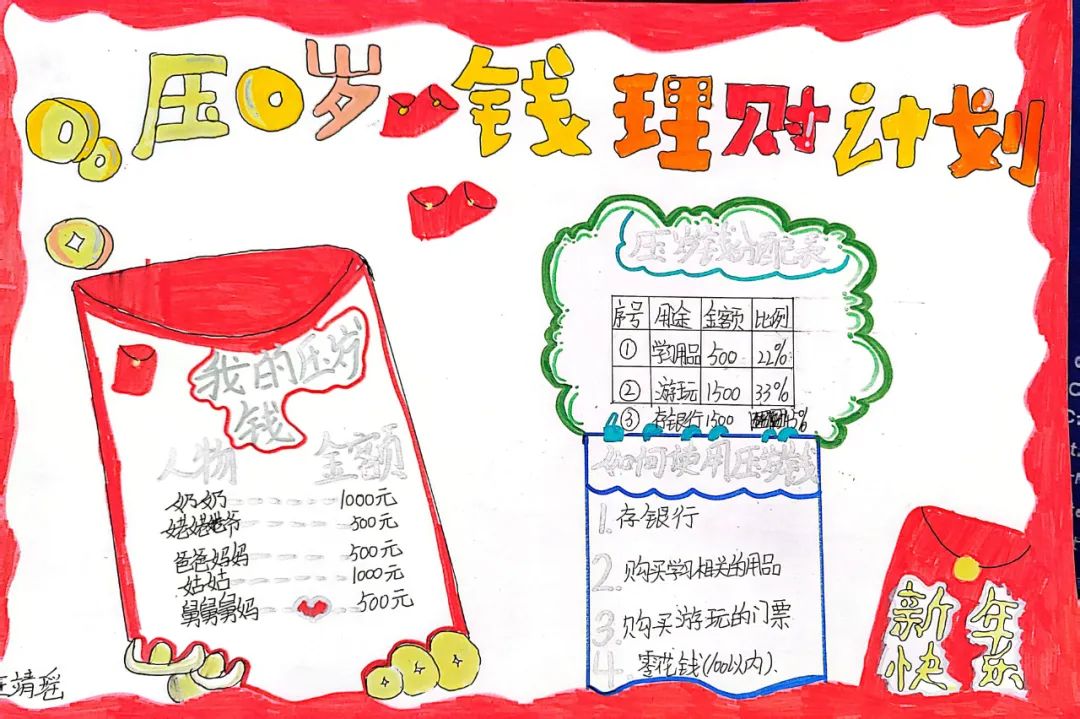 压岁钱理财计划
我的压岁
钱
人物 金额
奶奶 1000元
姥姥姥爷 500元
爸爸妈妈 500元
姑姑 1000元
舅舅舅妈 500元
靖瑶
压岁钱分配表
序号 用途 金额 比例
① 学习用品 500 22%
② 游玩 1500 33%
③ 存银行 1500 45%
如何使用压岁钱
1. 存银行
2. 购买学习相关的用品
3. 购买游玩的门票
4. 零花钱(100以内).
新年
快乐